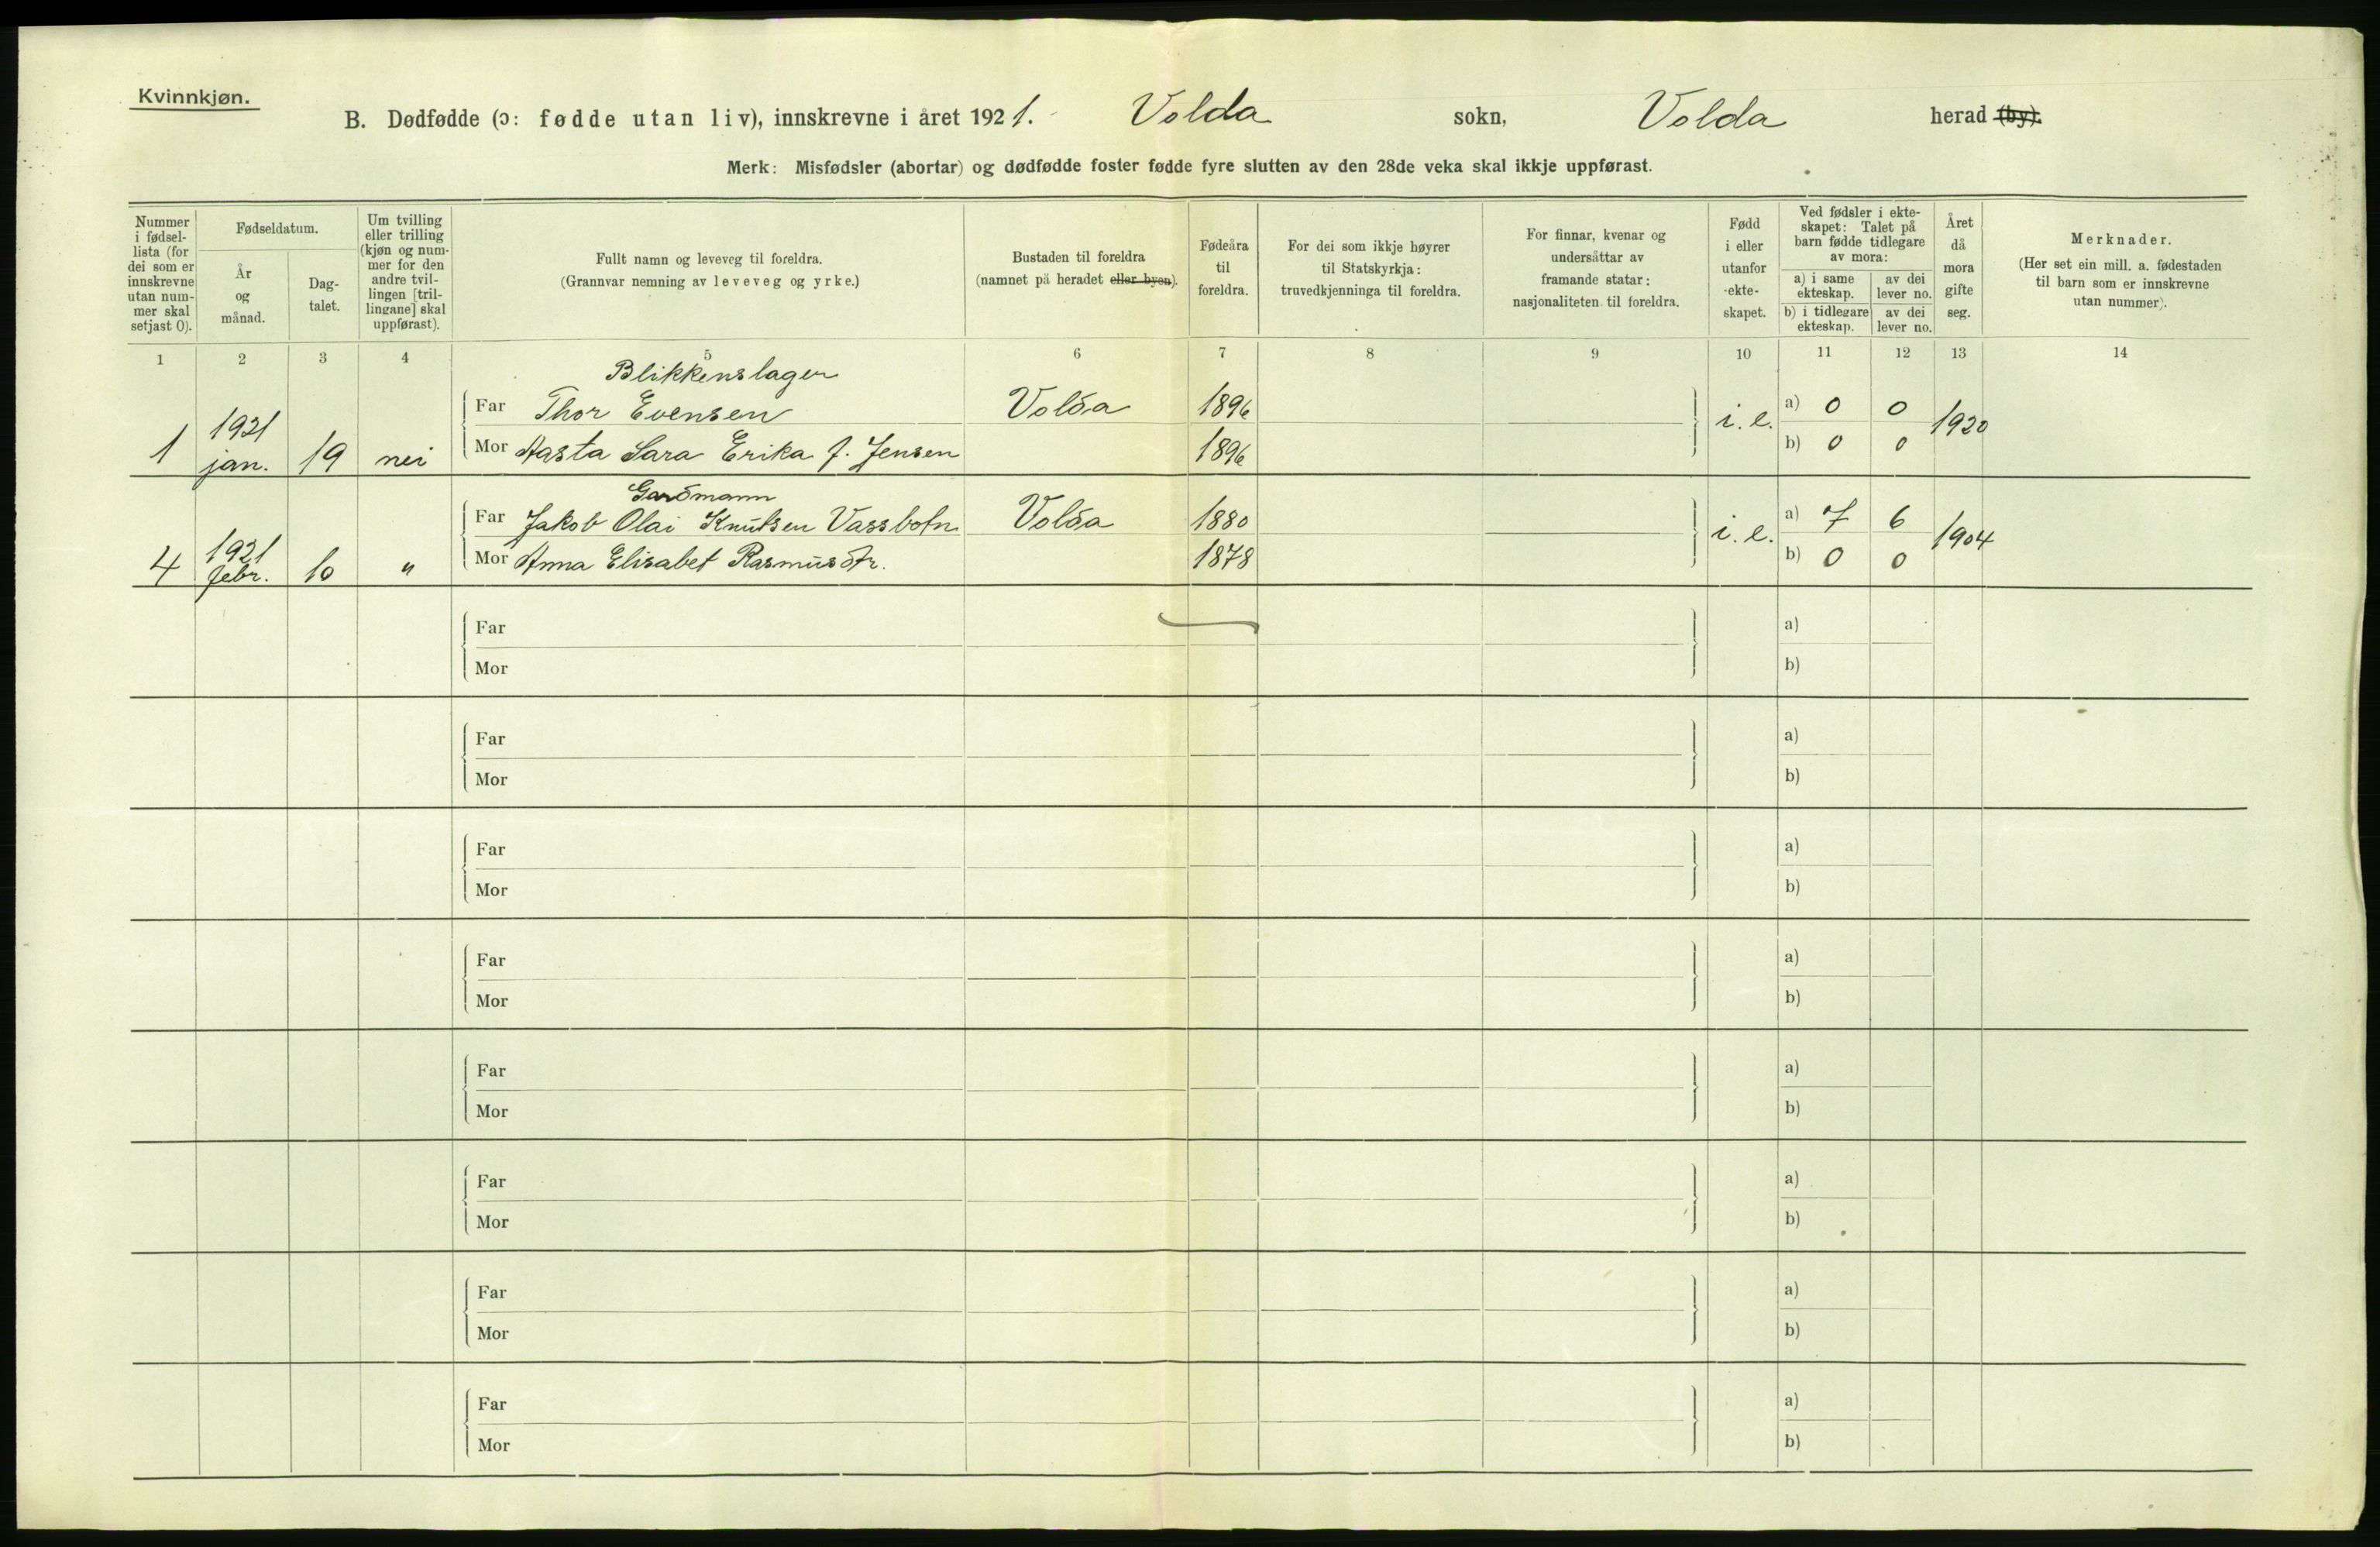 Kvinnkjøn.
B. Dødfødde (ɔ: fødde utan liv), innskrevne i året 1921. Volda sokn, Volda herad (by).
Merk: Misfødsler (abortar) og dødfødde foster fødde fyre slutten av den 28de veka skal ikkje uppførast.
Nummer i fødsel-lista (for dei som er innskrevne utan num-mer skal setjast 0).
Fødseldatum.
År og månad.
Dag-talet.
Um tvilling eller trilling (kjøn og num-mer for den andre tvil-lingen [tril-lingane] skal uppførast).
Fullt namn og leveveg til foreldra.
(Grannvar nemning av leveveg og yrke.)
Bustaden til foreldra
(namnet på heradet eller byen).
Fødeåra til foreldra.
For dei som ikkje høyrer til Statskyrkja: truvedkjenninga til foreldra.
For finnar, kvenar og undersåttar av framande statar: nasjonaliteten til foreldra.
Fødd i eller utanfor ekte-skapet.
Ved fødsler i ekte-skapet: Talet på barn fødde tidlegare av mora:
a) i same ekteskap.
av dei lever no.
b) i tidlegare ekteskap.
av dei lever no.
Året då mora gifte seg.
Merknader.
(Her set ein mill. a. fødestaden til barn som er innskrevne utan nummer).
1 2 3 4 5 6 7 8 9 10 11 12 13 14
Blikkenslager
Far Thor Evensen Volda 1896 a) 0 0
1 1921 jan. 19 nei i. e. 1920
Mor Aasta Sara Erika f. Jensen 1896 b) 0 0
Gardmann
Far Jakob Olai Knutsen Vassbotn Volda 1880 a) 7 6
4 1921 febr. 10 " i. e. 1904
Mor Anna Elisabet Rasmusdtr. 1878 b) 0 0
Far a)
Mor b)
Far a)
Mor b)
Far a)
Mor b)
Far a)
Mor b)
Far a)
Mor b)
Far a)
Mor b)
Far a)
Mor b)
Far a)
Mor b)